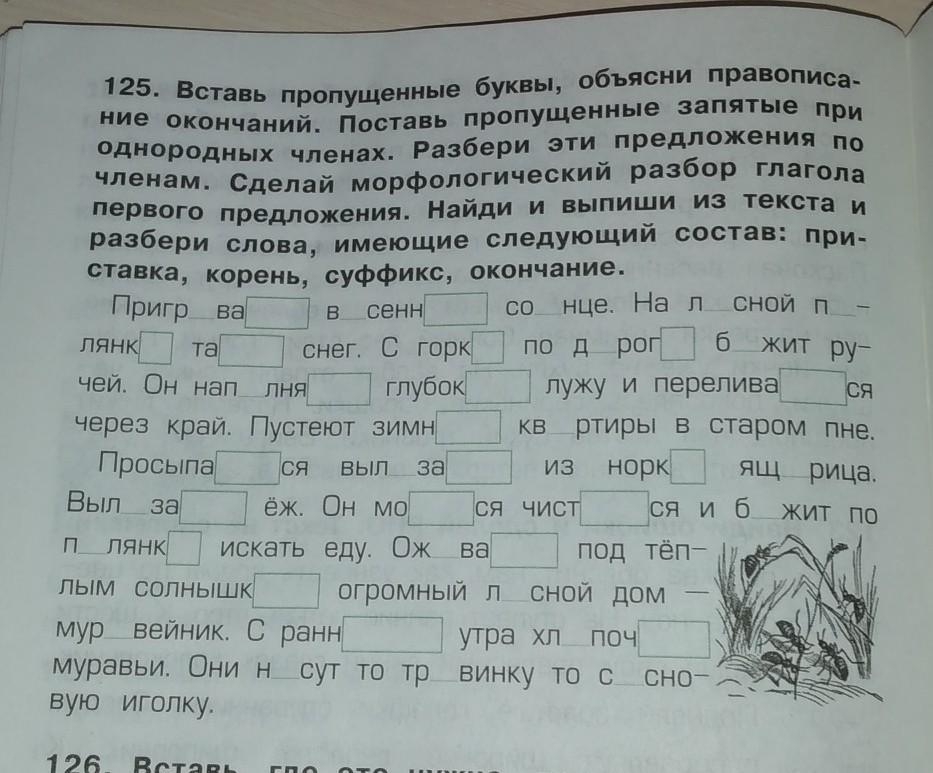 125. Вставь пропущенные буквы, объясни правописа-
ние окончаний. Поставь пропущенные запятые при
однородных членах. Разбери эти предложения по
членам. Сделай морфологический разбор глагола
первого предложения. Найди и выпиши из текста и
разбери слова, имеющие следующий состав: при-
ставка, корень, суффикс, окончание.
Пригр_ва□ в_сенн□ со_нце. На л_сной п_-
лянк□ та□ снег. С горк□ по д_рог□ б_жит ру-
чей. Он нап_лня□ глубок□ лужу и перелива□ся
через край. Пустеют зимн□ кв_ртиры в старом пне.
Просыпа□ся выл_за□ из норк□ ящ_рица.
Выл_за□ ёж. Он мо□ся чист□ся и б_жит по
п_лянк□ искать еду. Ож_ва□ под тёп-
лым солнышк□ огромный л_сной дом —
мур_вейник. С ранн□ утра хл_поч□
муравьи. Они н_сут то тр_винку то с_сно-
вую иголку.
126. Вставь, где это нужно